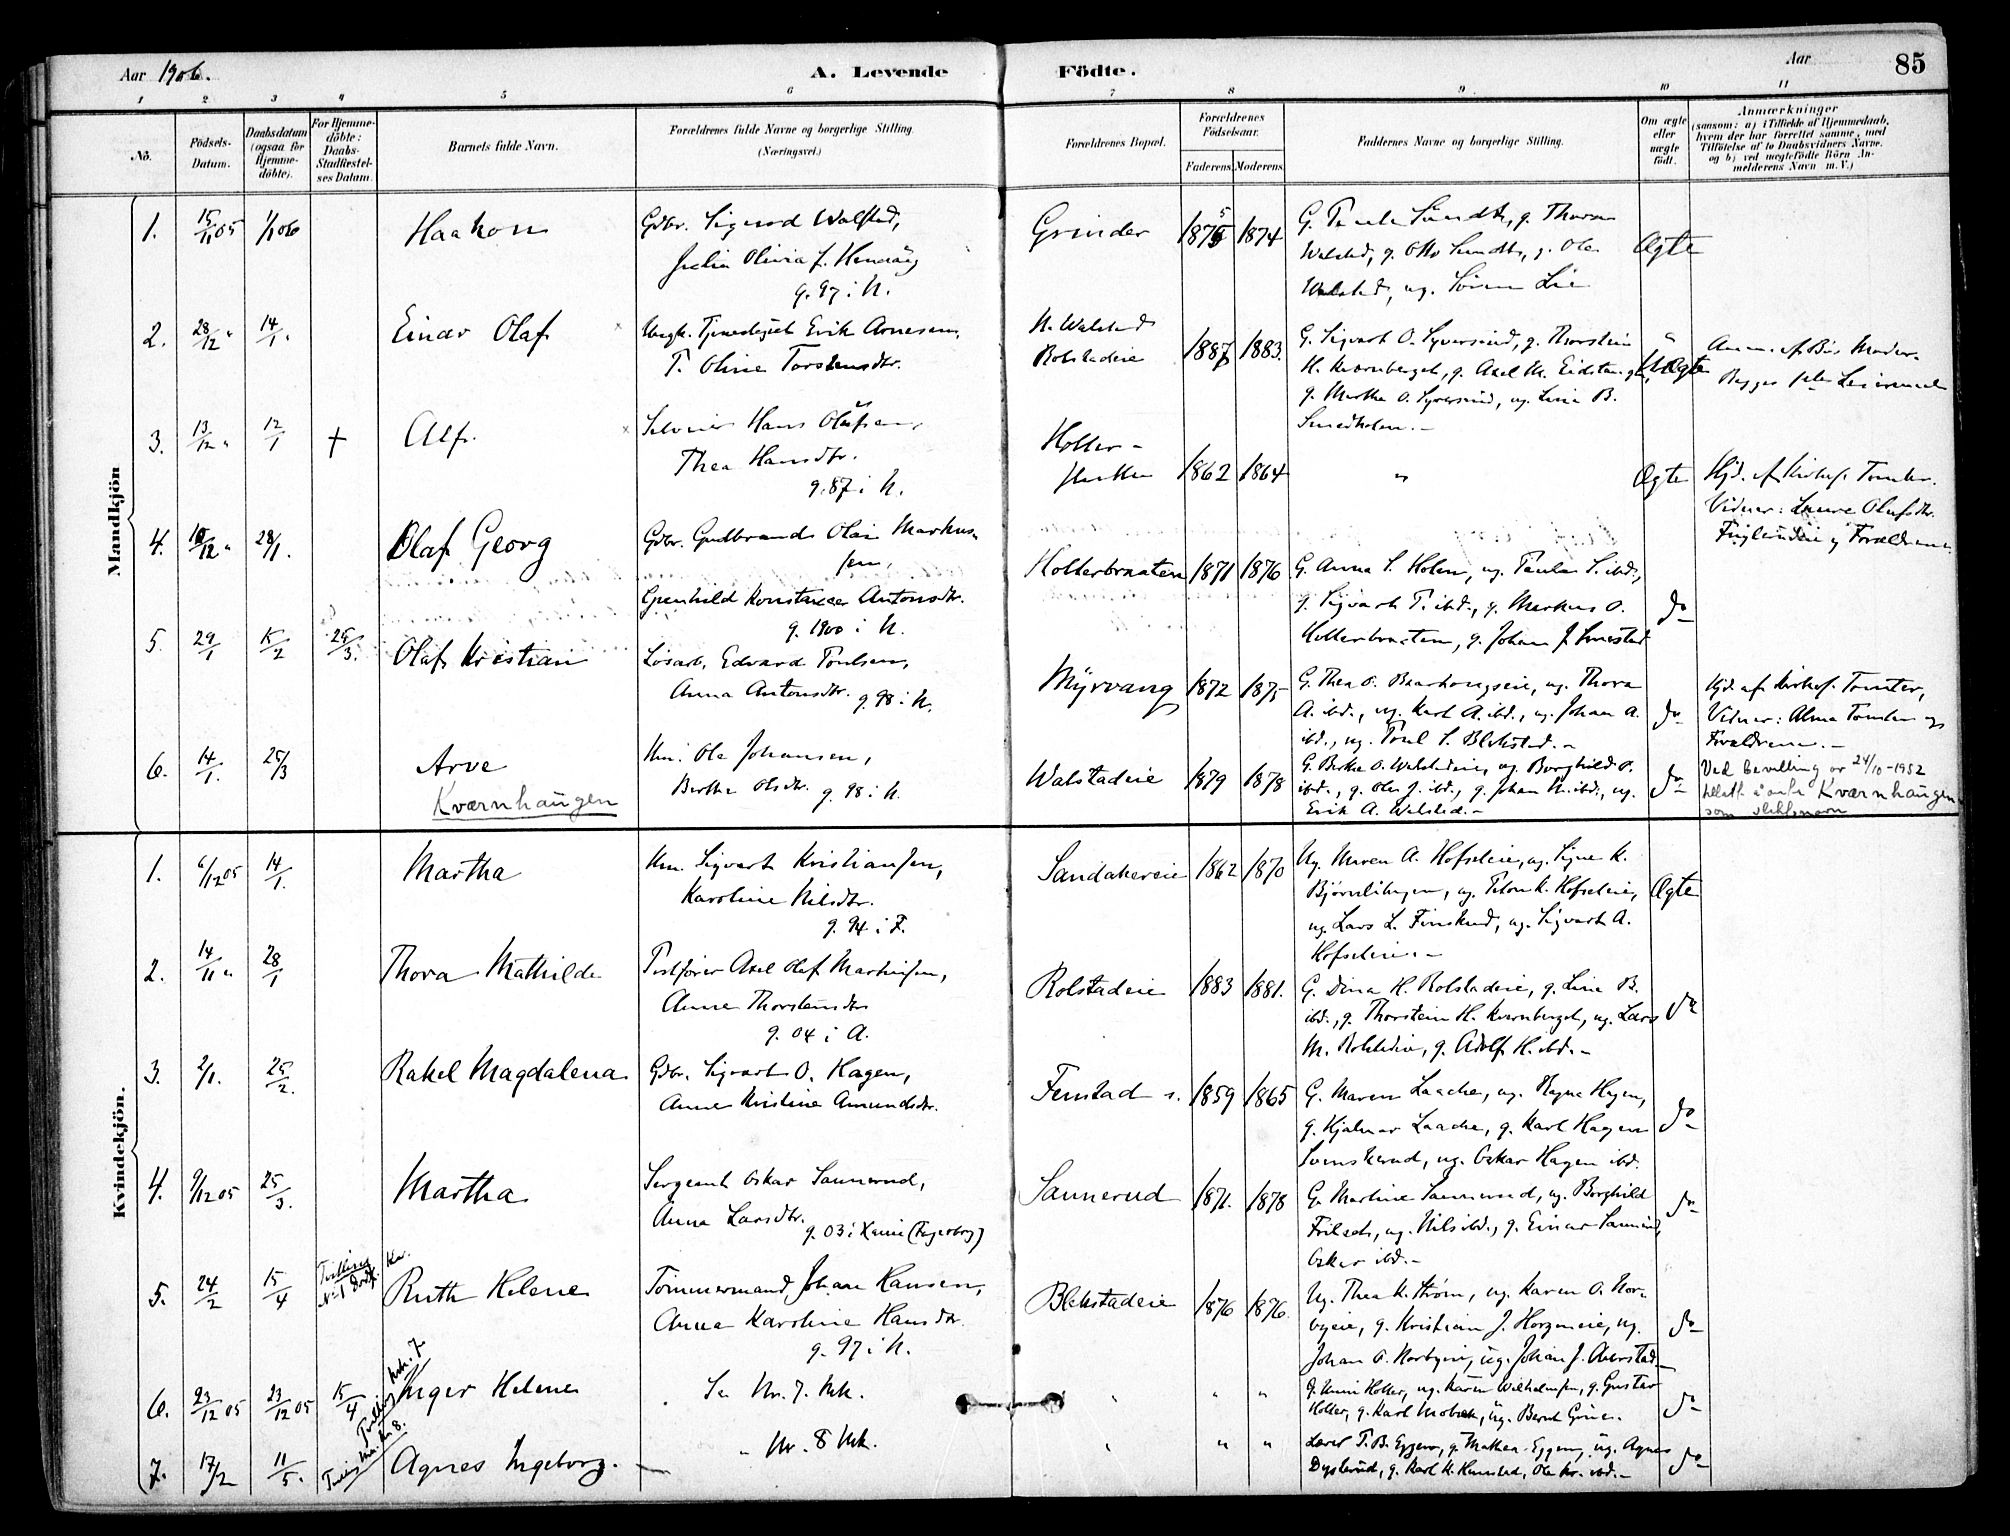 Aar 1906.
A. Levende Födte.
Aar
85
1 2 3 4 5 6 7 8 9 10 11
No.
Födsels-
Datum.
Daabsdatum
(ogsaa for
Hjemme-
döbte).
For Hjemme-
döbte:
Daabs-
Stadfæstel-
ses Datum.
Barnets fulde Navn.
Forældrenes fulde Navne og borgerlige Stilling.
(Næringsvei.)
Forældrenes Bopæl.
Forældrenes
Födselsaar.
Faderens. Moderens.
Faddernes Navne og borgerlige Stilling.
Om ægte
eller
uægte
født.
Anmærkninger
(saasom: a) i Tilfælde af Hjemmedaab,
hvem der har forrettet samme, med
Tilföielse af to Daabsvidners Navne,
og b) ved uægtefödte Börn An-
melderens Navn m. V.)
Mandkjön
1. 15/11 05 1/1 06 Haakon
Gdbr. Sigurd Walstad,
Julia Olivia f.
g. 97 i N.
Grinder 1875 1874
G. Paula Sundth, g. Thora
Walstad, g. Otto Sundth, g. Ole
Walstad, ug. Sören Lie
Ægte
2. 28/12 " 14/1 " Einar Olaf
Ungk. Erik Arnesen,
P. Oline Torstensdtr.
N. Walstad
Rolstadeie 1887 1883.
G. Sigvart O. Syversrud, g. Thorstein
H. Kvernberget, g. Axel M.
g. Martha O. Syversrud, ug. Lina B.
Smedholen. -
Uægte
Anm. af Bs Moder.
Begges 1ste Leiermaal
3. 13/12 " 12/1 + Alf.
Hans Olafsen,
Thea Hansdtr.
g. 87 i N.
Holter-
1862 1864
"
Ægte
Hjd. af Kirkes. Tomter.
Vidner: Laura Olufsdtr.
og Forældrene
4. 10/12 " 28/1. Olaf Georg
Gdbr. Gudbrand Olai Markus-
sen,
Gunhild Konstance Antonsdtr.
g. 1900 i N.
Holterbraaten 1871 1876
G. Anna S. Holen, ug. Paula S. ibd.,
g. Sigvart P. ibd., g. Markus O.
Holterbraaten, g. Johan J. Smestad
do
5. 29/1 15/2 25/3. Olaf Kristian
Lösarb. Edvard Poulsen,
Anna Antonsdtr. g. 98 i N.
Myrvang 1872 1875
G. Thea O. Baarhaugseie, ug. Thora
A. ibd., ug. Karl A. ibd., ug. Johan A.
ibd., ug. Poul S. Blekstad. -
do
Hjd. af Kirkes. Tomter,
Vidner: Alma Tomter og
Forældrene. -
6. 14/1. 25/3 Arve
Kværnhaugen
Hm. Ole Johansen,
Berthe Olsdtr. g. 98 i N.
Walstadeie 1879 1878
G. Berthe O. Walstadeie, ug. Borghild O.
ibd., g. Olea J. ibd., g. Johan N. ibd., ug.
Erik A. Walstad. -
do
Ved bevilling av 24/10-1952
tillatt å anta Kværnhaugen
som slektsnavn
Kvindekjön.
1. 6/12 05 14/1. Martha
Hm. Sigvart Kristiansen,
Karoline Nilsdtr.
g. 94 i F.
Sandakereie 1862 1870
Ug. Maren A. Hofseleie, ug. Signe K.
ug. K. Hofseleie,
ug. Lars L. Finstad, ug. Sigvart A.
Hofseleie. -
Ægte
2. 14/11 " 28/1 Thora Mathilde
Postfører Axel Olaf Martinsen,
Anna Thorsteinsdtr
g. 04 i A.
Rolstadeie 1883 1881.
G. Dina H. Rolstadeie, g. Lina B.
ibd., g. Thorstein H. Kvernberget, ug. Lars
M. Rolstadeie, g. Adolf H. ibd. -
do
3. 2/1. 25/2. Rakel Magdalena
Gdbr. Sigvart O. Hagen,
Anne Kristine Amundsdtr.
Fenstad s. 1859 1865
G. Maren Laache, ug. Ragna Hagen,
g. Hjalmar Laache, g. Karl Hagen
ug. Oskar Hagen ibd.
do
4. 9/12 05 25/3. Martha
Sergeant Oskar Sannerud,
Anna Larsdtr.
g. 03 i Xania (Fagerborg)
Sannerud 1871. 1878
G. Martine Sannerud, ug. Borghild
ug. Nils ibd., g. Einar Sannerud,
Oskar ibd. -
do
5. 24/2 15/4 Tvilling
No 1 Dødf. Kv.
Ruth Helene
Tömmermand Johan Hansen,
Anna Karoline Hansdtr.
g. 97 i N.
Blekstadeie 1876 1876.
Ug. Thea K. Strøm, ug. Karen O. Nor-
byeie, g. Kristian J. ug.
Johan O. Norbyeie, ug. Johan J. -
do
6. 23/12 05 23/12 05 15/4 Tvilling Mk. 7
Inger Helene
Se Nr. 7. Mk.
" " "
Holter, ug. Karen Wilhelmsen, g. Gustav
Holter, g. Karl ug. Bernt
do
7. 17/2 11/5. Tvilling Mk. 8.
Agnes Ingeborg. -
" Nr. 8 Mk.
" " "
Lærer P. B. Eggen, g. Mathea Eggen, ug. Agnes
Dysterud, g. Karl K. Ole Kr. ibd. -
do